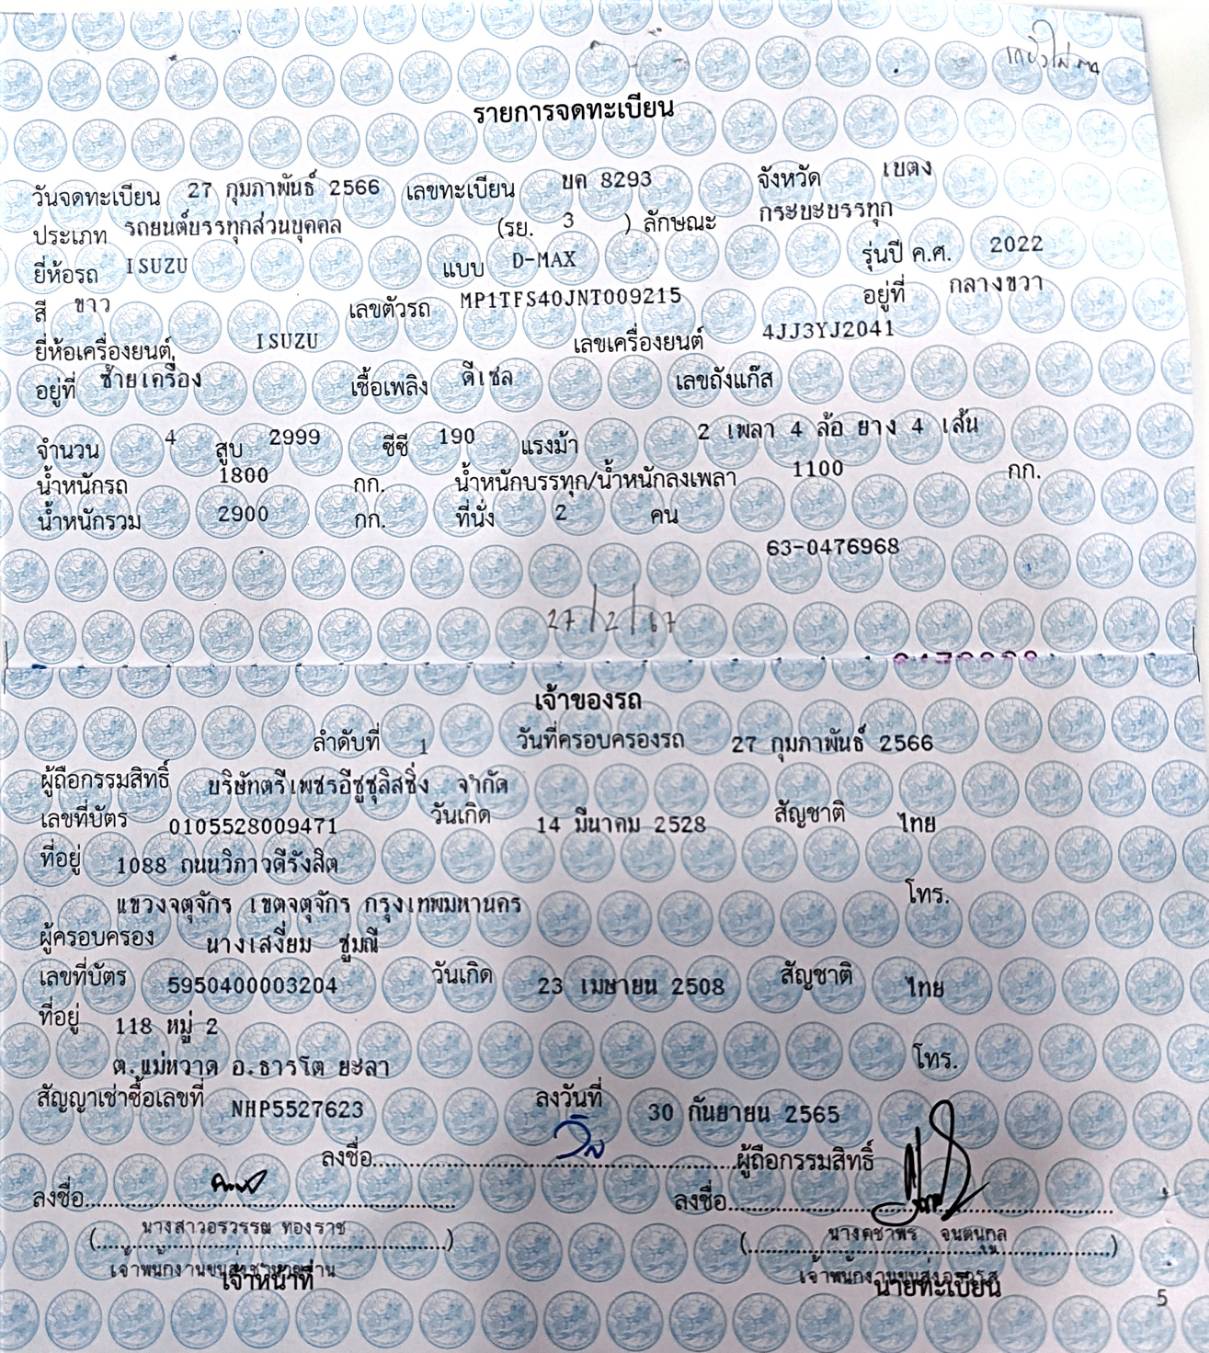 รายการจดทะเบียน
วันจดทะเบียน 27 กุมภาพันธ์ 2566 เลขทะเบียน บค 8293 จังหวัด เบตง
ประเภท รถยนต์บรรทุกส่วนบุคคล (รย. 3 ) ลักษณะ กระบะบรรทุก
ยี่ห้อรถ ISUZU แบบ D-MAX รุ่นปี ค.ศ. 2022
สี ขาว เลขตัวรถ MP1TFS40JNT009215 อยู่ที่ กลางขวา
ยี่ห้อเครื่องยนต์ ISUZU เลขเครื่องยนต์ 4JJ3YJ2041
อยู่ที่ ซ้ายเครื่อง เชื้อเพลิง ดีเซล เลขถังแก๊ส
จำนวน 4 สูบ 2999 ซีซี 190 แรงม้า 2 เพลา 4 ล้อ ยาง 4 เส้น
น้ำหนักรถ 1800 กก. น้ำหนักบรรทุก/น้ำหนักลงเพลา 1100 กก.
น้ำหนักรวม 2900 กก. ที่นั่ง 2 คน
63-0476968
27/2/67
เจ้าของรถ
ลำดับที่ 1 วันที่ครอบครองรถ 27 กุมภาพันธ์ 2566
ผู้ถือกรรมสิทธิ์ บริษัทตรีเพชรอีซูซุลิสซิ่ง จำกัด
เลขที่บัตร 0105528009471 วันเกิด 14 มีนาคม 2528 สัญชาติ ไทย
ที่อยู่ 1088 ถนนวิภาวดีรังสิต
แขวงจตุจักร เขตจตุจักร กรุงเทพมหานคร โทร.
ผู้ครอบครอง นางเสงี่ยม ชุ่มณี
เลขที่บัตร 5950400003204 วันเกิด 23 เมษายน 2508 สัญชาติ ไทย
ที่อยู่ 118 หมู่ 2
ต.แม่หวาด อ.ธารโต ยะลา โทร.
สัญญาเช่าซื้อเลขที่ NHP5527623 ลงวันที่ 30 กันยายน 2565
ลงชื่อ..........ผู้ถือกรรมสิทธิ์
ลงชื่อ.......... ลงชื่อ..........
(นางสาวอรวรรณ ทองราช) (นางคชาพร จนตนุกูล)
เจ้าหน้าที่ นายทะเบียน
5